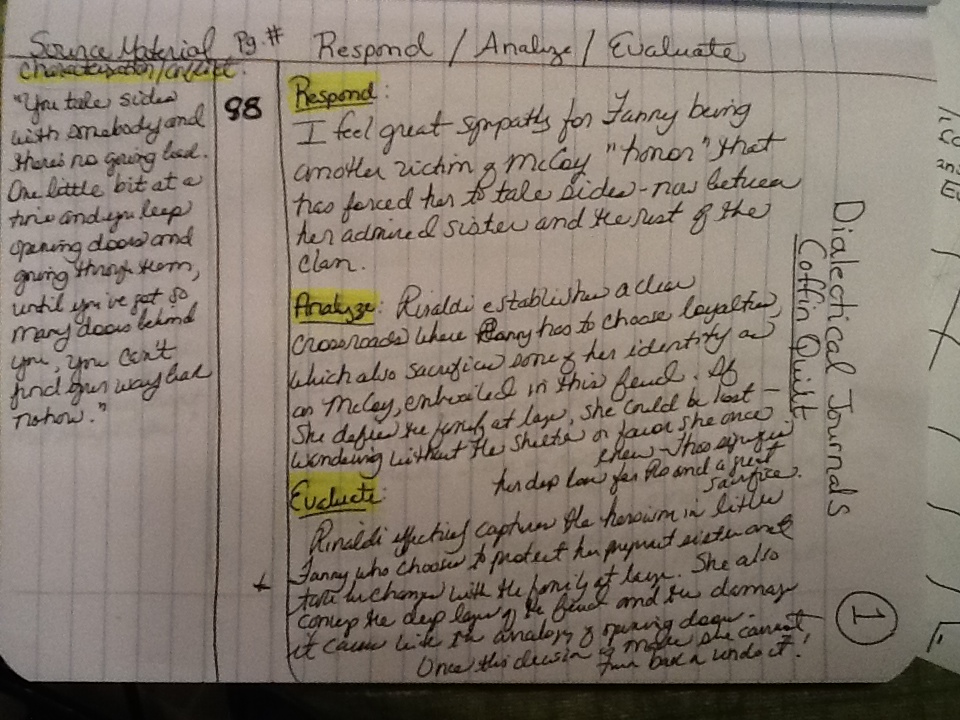 Source Material Pg.# Respond / Analize / Evaluate
Characterization/Conflict.
"You take sides
with somebody and
there's no going back.
One little bit at a
time and you keep
opening doors and
going through them,
until you've got so
many doors behind
you, you can't
find your way back
nohow."
98
Respond:
I feel great sympathy for Fanny being
another victim of McCoy "honor" that
has forced her to take sides - now between
her admired sister and the rest of the
clan.
Analyze: Rinaldi establishes a clear
crossroads where Fanny has to choose loyalties,
which also sacrifices some of her identity as
an McCoy, embroiled in this feud. If
she defies the family at large, she could be lost -
wandering without the shelter or favor she once
knew - This
her deep love for Ro and a great
sacrifice.
Evaluate:
Rinaldi effectively captures the heroism in little
Fanny who chooses to protect her pregnant sister and
take changes with the family at large. She also
conveys the deep layers of the feud and the damage
it causes with the analogy of opening doors.
Once this decision is made she cannot
turn back or undo it!
Dialectical Journals
Coffin Quilt
1